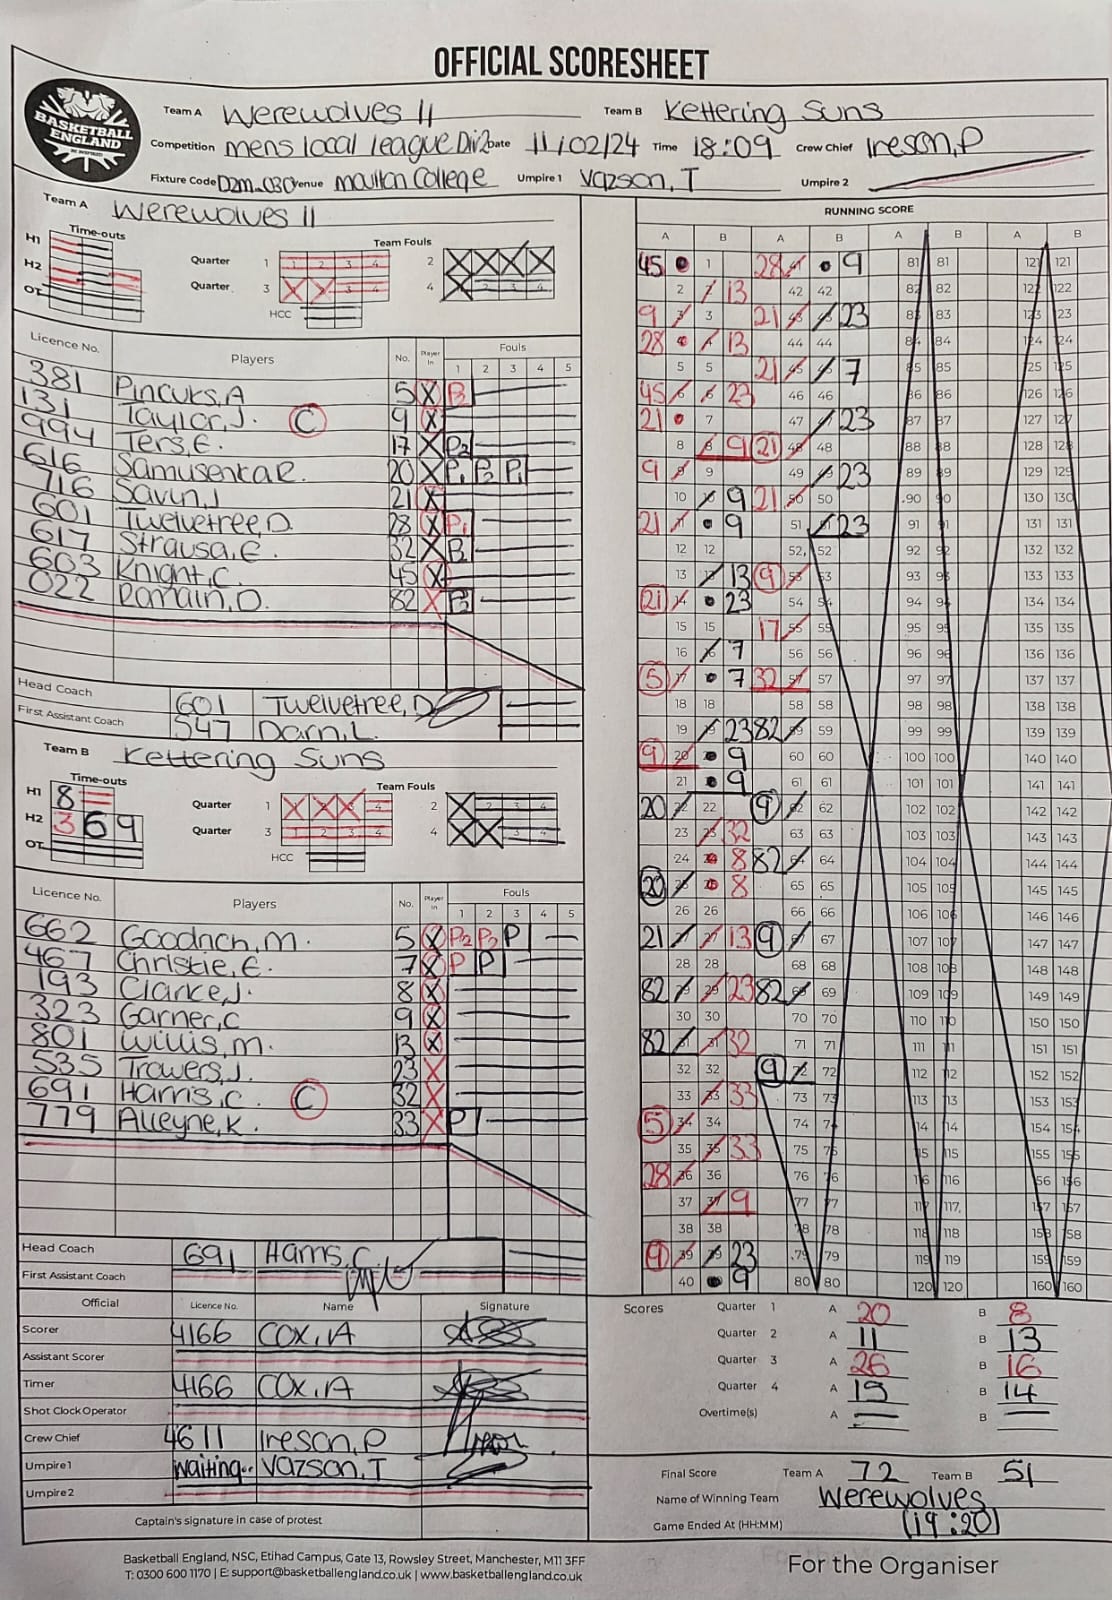 OFFICIAL SCORESHEET
BASKETBALL ENGLAND
Team A Werewolves II Team B Kettering Suns
Competition mens local league Div2 Date 11/02/24 Time 18:09 Crew Chief Ireson, P
Fixture Code D2m_030 Venue Moulton College Umpire 1 Vazson, T Umpire 2
Team A Werewolves II
Time-outs
Team Fouls
H1 Quarter 1 1 2 3 4 2
H2 Quarter 3 3 4 4 2 3 4
OT HCC
Licence No. Players No. Player In Fouls
1 2 3 4 5
381 Pincuks, A 5 X B
131 Taylor, J. C 9 X
994 Ters, E. 17 X P2
616 Samusenka R. 20 X P1 P2 P1
716 Savin, J 21 X
601 Twelvetree, D. 28 X P1
617 Strausa, E. 32 X B
603 Knight, C. 45 X
022 Romain, D. 82 X P2
Head Coach 601 Twelvetree, D
First Assistant Coach 547 Darn, L.
Team B Kettering Suns
Time-outs
Team Fouls
H1 8 Quarter 1 4 2 2 3 4
H2 3 6 9 Quarter 3 1 2 3 4 4 3 4
OT HCC
Licence No. Players No. Player In Fouls
1 2 3 4 5
662 Goodrich, M. 5 X P2 P2 P
467 Christie, E. 7 X P P
193 Clarke, J. 8 X
323 Garner, C 9 X
801 Willis, M. 13 X
535 Trowers, J. 23 X
691 Harris, C. C 32 X
779 Alleyne, K. 33 X P
Head Coach 691 Harris, C.
First Assistant Coach
Official Licence No. Name Signature
Scorer 4166 COX, A
Assistant Scorer
Timer 4166 COX, A
Shot Clock Operator
Crew Chief 4611 Ireson, P
Umpire 1 Waiting.. Vazson, T
Umpire 2
Captain's signature in case of protest
RUNNING SCORE
A B A B A B A B
45 1 28 41 9 81 81 121 121
2 2 13 42 42 82 82 122 122
9 3 3 21 43 43 23 83 83 123 123
28 4 13 44 44 84 84 124 124
5 5 21 45 45 7 85 85 125 125
45 6 6 23 46 46 86 86 126 126
21 7 47 47 23 87 87 127 127
8 8 9 21 48 48 88 88 128 128
9 9 9 49 49 23 89 89 129 129
10 10 9 21 50 50 90 90 130 130
21 11 9 51 51 23 91 91 131 131
12 12 52 52 92 92 132 132
13 13 13 9 53 53 93 93 133 133
21 14 23 54 54 94 94 134 134
15 15 17 55 55 95 95 135 135
16 16 7 56 56 96 96 136 136
5 17 7 32 57 57 97 97 137 137
18 18 58 58 98 98 138 138
19 19 23 82 59 59 99 99 139 139
9 20 20 9 60 60 100 100 140 140
21 9 61 61 101 101 141 141
20 22 22 9 62 62 102 102 142 142
23 23 32 63 63 103 103 143 143
24 24 8 82 64 64 104 104 144 144
20 25 8 65 65 105 105 145 145
26 26 66 66 106 106 146 146
21 27 27 13 9 67 67 107 107 147 147
28 28 68 68 108 108 148 148
82 29 29 23 82 69 69 109 109 149 149
30 30 70 70 110 110 150 150
82 31 31 32 71 71 111 111 151 151
32 32 9 72 72 112 112 152 152
33 33 33 73 73 113 113 153 153
5 34 34 74 74 114 114 154 154
35 35 33 75 75 115 115 155 155
28 36 36 76 76 116 116 156 156
37 37 9 77 77 117 117 157 157
38 38 78 78 118 118 158 158
9 39 39 23 79 79 119 119 159 159
40 9 80 80 120 120 160 160
Scores Quarter 1 A 20 B 8
Quarter 2 A 11 B 13
Quarter 3 A 26 B 16
Quarter 4 A 15 B 14
Overtime(s) A B
Final Score Team A 72 Team B 51
Name of Winning Team Werewolves
Game Ended At (HH:MM) (19:20)
Basketball England, NSC, Etihad Campus, Gate 13, Rowsley Street, Manchester, M11 3FF
T: 0300 600 1170 | E: support@basketballengland.co.uk | www.basketballengland.co.uk
For the Organiser